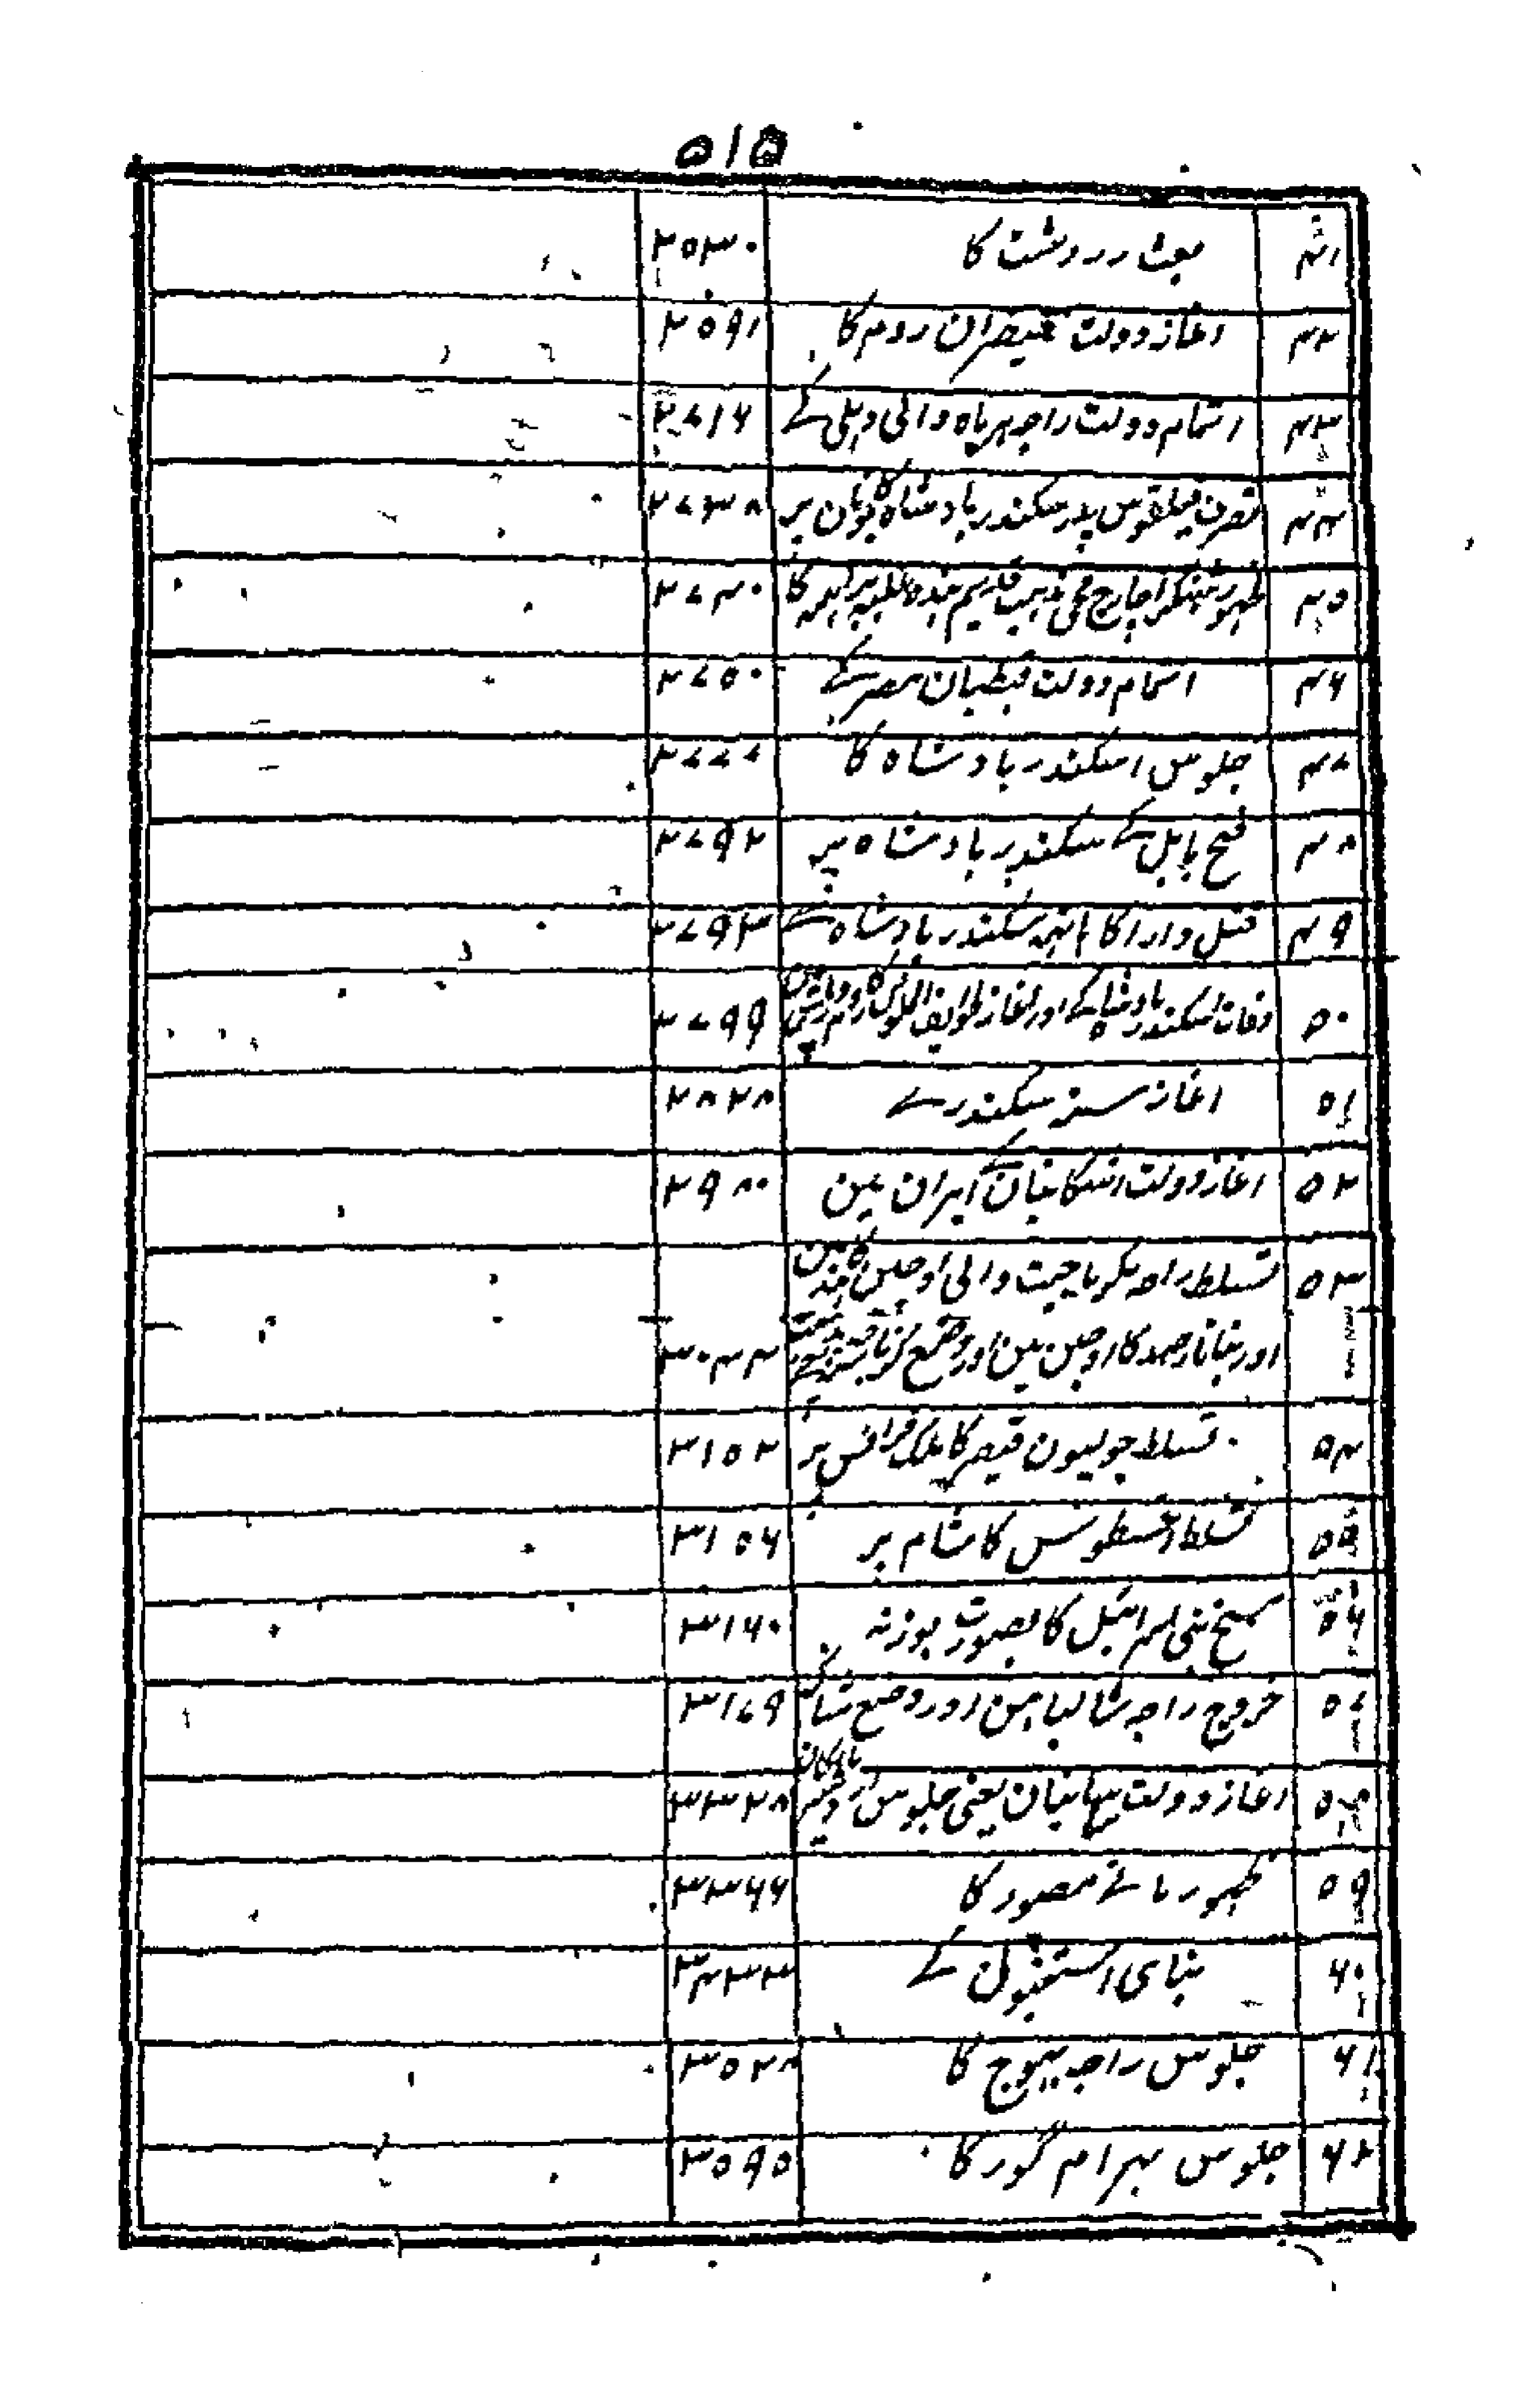 ۵۱۵
۴۱ بعثت زردشت کا ۲۵۳۰
۴۲ اغاز دولت قیصران روم کا ۲۵۹۱
۴۳ اتمام دولت راجہ والی دہلی کے ۲۷۱۶
۴۴ تصرف فیلقوس پدر سکندر بادشاہ کا یونان پر ۲۷۳۸
۴۵ ظہور شنکراچارج محی مذہب قدیم کا ۲۷۴۰
۴۶ اتمام دولت قبطیان مصر کے ۲۷۵۰
۴۷ جلوس اسکندر بادشاہ کا ۲۷۷۷
۴۸ فتح بابل کے سکندر بادشاہ پر ۲۷۹۲
۴۹ قتل دارا کا ہاتہہ سکندر بادشاہ سے ۲۷۹۳
۵۰ وفات اسکندر بادشاہ کے اور اغاز طوایف الملوکی کا ۲۷۹۹
۵۱ اغاز سنہ سکندرے ۲۸۲۸
۵۲ اغاز دولت اشکانیان کے ایران مین ۲۹۸۰
۵۳ تسلط راجہ بکرماجیت والی اوجین کا ہند مین
اور بنانا رصد کا اوجین مین اور وضع ۳۰۴۴
۵۴ تسلط جولیون قیصر کا ملک فرانس پر ۳۱۵۲
۵۵ تسلط اغسطوس کا شام پر ۳۱۵۶
۵۶ مسخ بنی اسرائیل کا بصورت بوزنہ ۳۱۶۰
۵۷ خروج راجہ شالباہن اور وضع شاکہ ۳۱۷۹
۵۸ اغاز دولت ساسانیان یعنی جلوس اردشیر بابکان ۳۳۲۸
۵۹ ظہور مانے مصور کا ۳۳۶۶
۶۰ بنای استنبول کے ۳۴۳۳
۶۱ جلوس راجہ بہوج کا ۳۵۲۸
۶۲ جلوس بہرام گور کا ۳۵۹۵